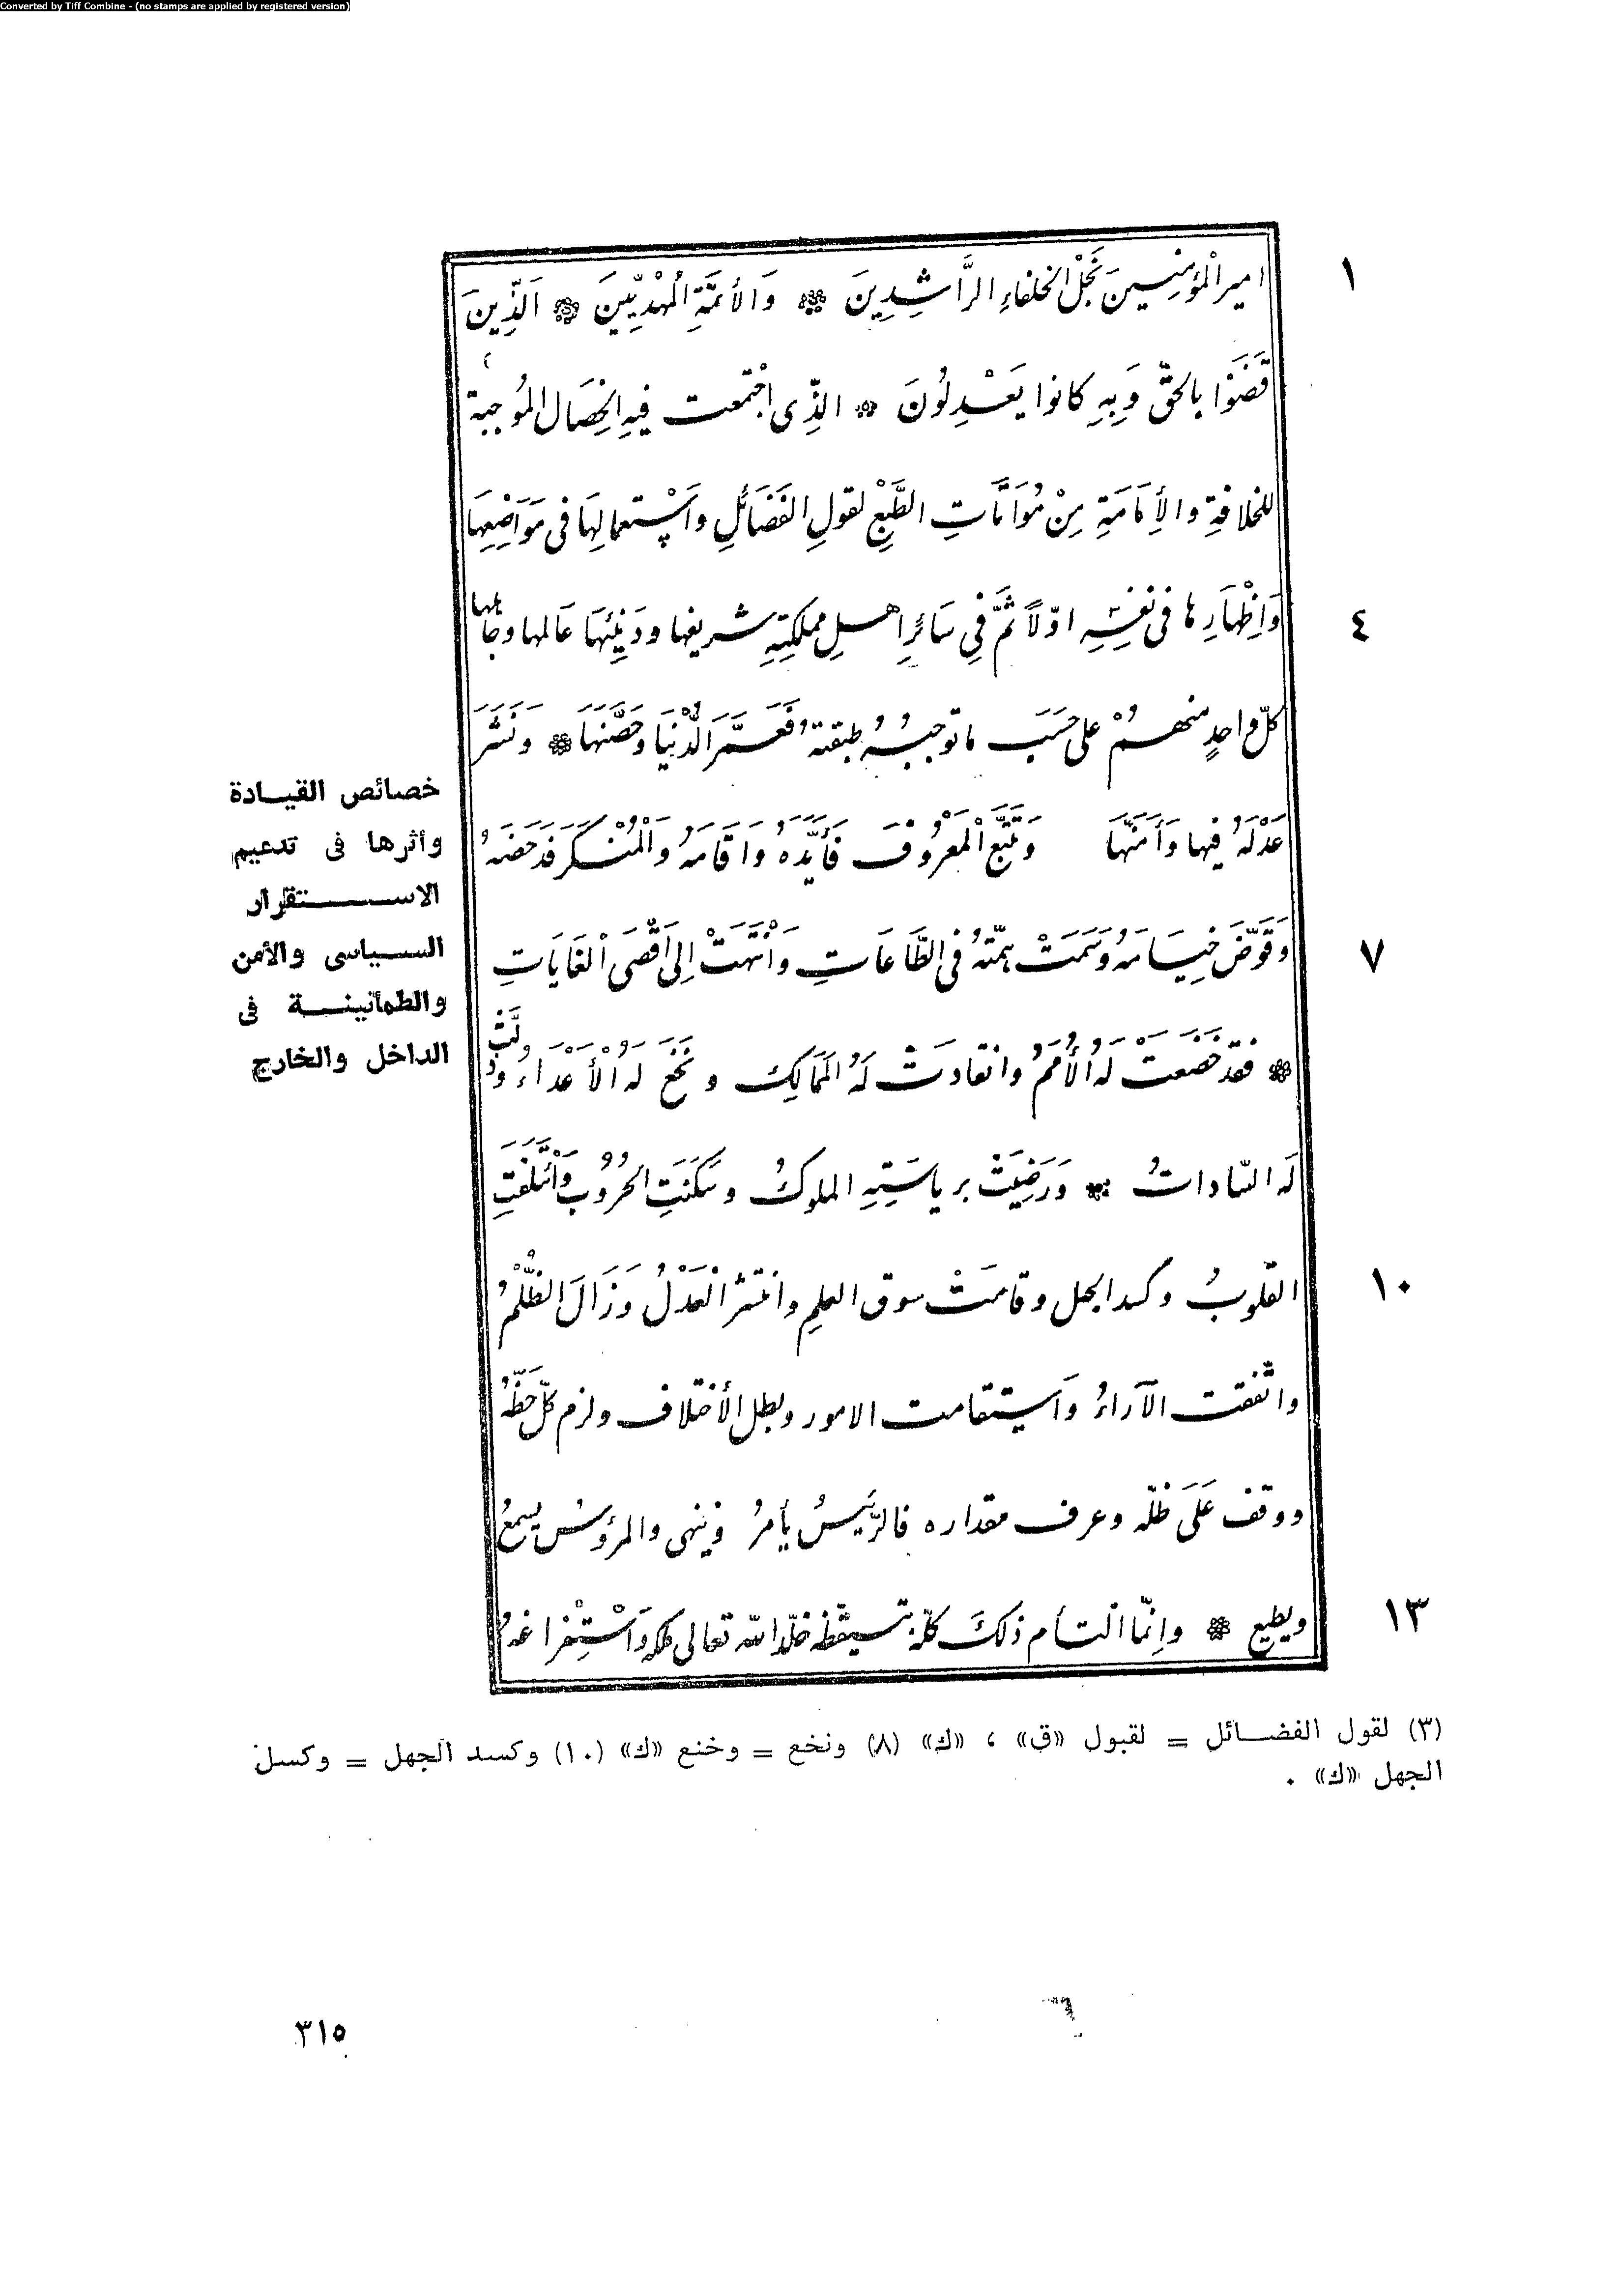 Converted by Tiff Combine - (no stamps are applied by registered version)
١
امير الْمؤمنِينَ نَجْلْ الخلفاءِ الرَّاشِدِينَ ❊ وَالأئمَّةِ الْمُهْدِيّينَ ❊ اَلذِّينَ
قَضَوْا بالحقّ وَبِهِ كانوا يَعْدِلُونَ ❊ الذِّى اجْتمعت فيهِ الْخِصَال الْمُوجبة
للخلافةِ والأِمَامَةِ مِنْ مُوَاتَاتِ الطَّبْعِ لقولِ الفَضَائلِ وَاسْتعمالِهَا فى مَوَاضِعِهَا
٤
وَاِظْهَارِها فى نفسِهِ اوّلاً ثمَّ فِي سَائرِ اهلِ مملكتِهِ شريفها ودَنِيئهَا عَالمها وجَاهلها
كلّ واحدٍ منهمْ على حَسَبَ ما توجبُهُ طبقتهُ فَعَمَّرَ الدُّنْيَا وَحَصَّنَهَا ❊ وَنَشَرَ
عَدْلَهُ فيها وَأَمَنَّهَا وَتَتَبَّعَ الْمَعْرُوفَ فَأَيَّدَهُ وَاقَامَهُ وَالْمُنْكَرَ فَدَحَضَهُ
٧
وَقَوّضَ خِيَامَهُ وَسَمَتْ هِمّتهُ فى الطَّاعَاتِ وَانْتَهَتْ اِلىَ اَقْصَى الْغَايَاتِ
❊ فقد خَضَعَتْ لَهُ الأُمَمُ وانقادتْ لَهُ الْمَمَالِكِ ونَخَعَ لهُ الْأَعْدَاءُ وذُلّتْ
لَه السّاداتُ ❊ وَرَضِيَتْ برياسَتِهِ الملوكُ وسَكَنَتِ الحُرُوُبُ وَائْتَلَفَتِ
١٠
القلوبُ وكسد الجهل وقامَتْ سوق العلمِ وانتشر الْعَدْلُ وَزَالَ الظُّلْمُ
واتّفقت الآراءُ وَاستِقامت الامور وبطل الأختلاف ولزم كلّ حَظّهُ
ووقف عَلَى ظلّه وعرف مقداره فالرَّئيسُ يأمرُ وينهى والمرؤسُ يسمعُ
١٣
ويطيع ❊ وانِمّا التأم ذلكَ كلّه بتيقّظه خلّد الله تعالى ملكه وَاسْتِفْراغهُ
خصائص القيـادة
وأثرها فى تدعيم
الاستقرار
السياسى والأمن
والطمأنينة فى
الداخل والخارج
(٣) لقول الفضائل = لقبول «ق» ، «ك» (٨) ونخع = وخنع «ك» (١٠) وكسد الجهل = وكسل
الجهل «ك» .
٣١٥